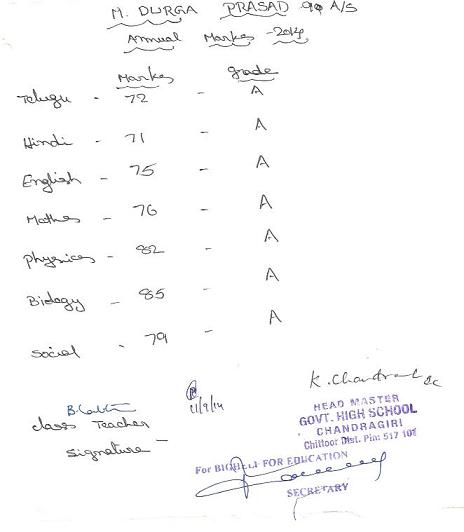 M. DURGA PRASAD 9th A/S
Annual Markes - 2014
Markes grade
Telugu - 72 - A
Hindi - 71 - A
English - 75 - A
Mathes - 76 - A
physices - 82 - A
Biology - 85 - A
Social - 79 - A
K. Chandra
11/9/14
class Teacher
Signature -
HEAD MASTER
GOVT. HIGH SCHOOL
CHANDRAGIRI
Chittoor Dist. Pin: 517 101
For BIGHELP FOR EDUCATION
SECRETARY